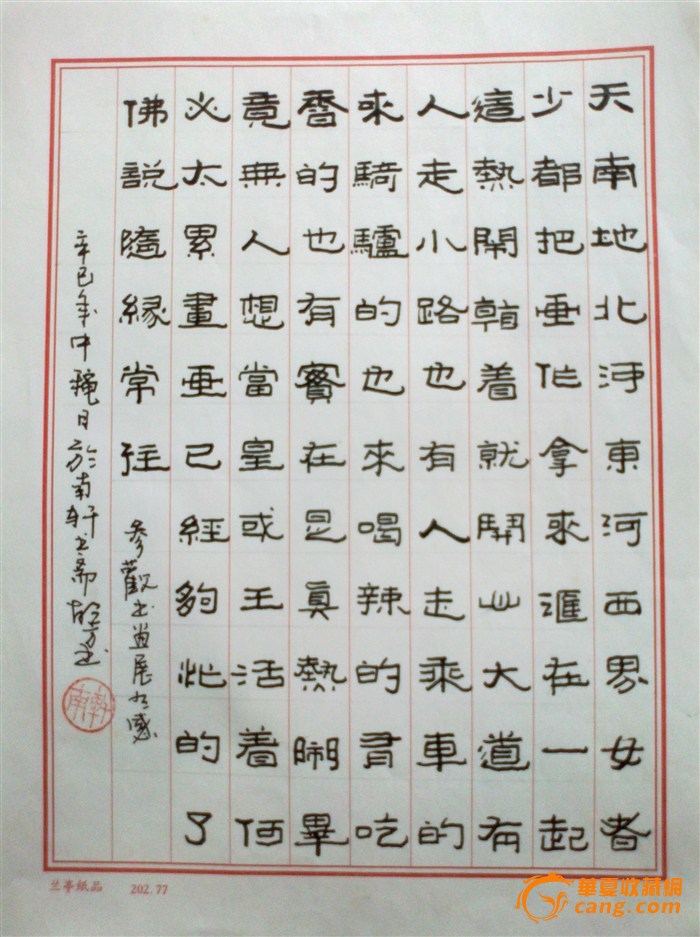 天南地北河東河西男女老
少都把作拿來匯在一起
這熱鬧着就大道有
人走小路也有人走乘車的
來騎驢的也來喝辣的有吃
香的也有實在是真熱鬧畢
竟無人想當皇或王活着何
必太累畫已經夠忙的了
佛說隨緣常住
參觀书畫展有感
辛巳年中穐日於南軒书斋书
南軒
兰亭紙品 202.77
華夏收藏網
cang.com